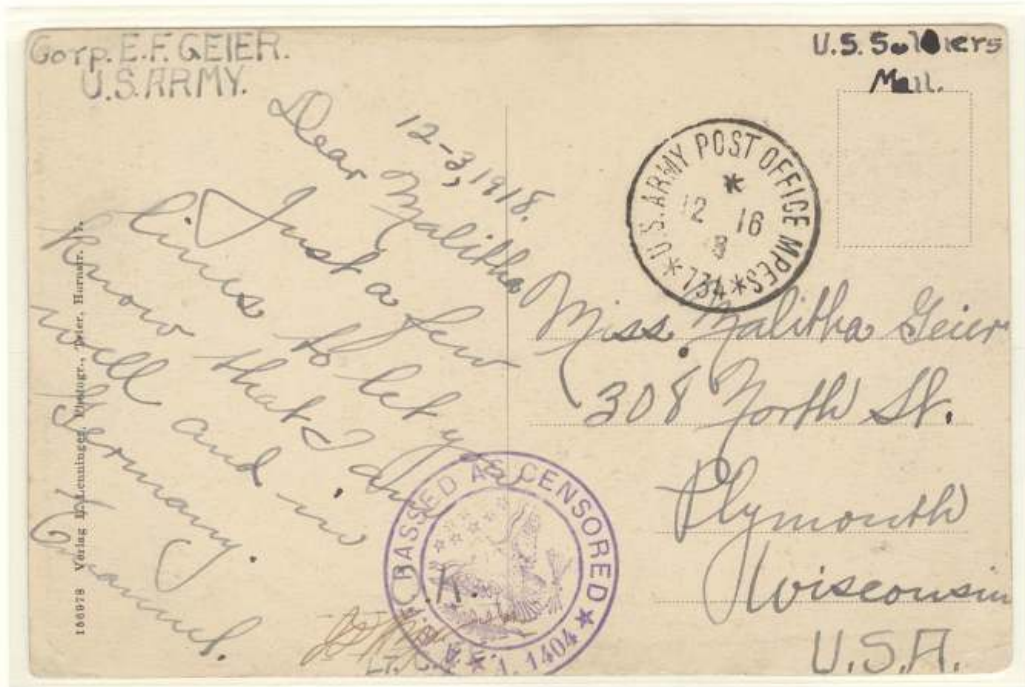 Corp. E.F. GEIER.
U.S. ARMY.
U.S. Soldiers
Mail.
12-3, 1918.
Dear Malitha
Just a few
lines to let you
know that I am
well and in
Germany.
Emanuel.
U.S. ARMY POST OFFICE MPES
12 16
8
*734*
Miss. Malitha Geier
308 North St.
Plymouth
Wisconsin
U.S.A.
PASSED AS CENSORED
A.E.F.
1404
O.K.
156978 Verlag
Trier,